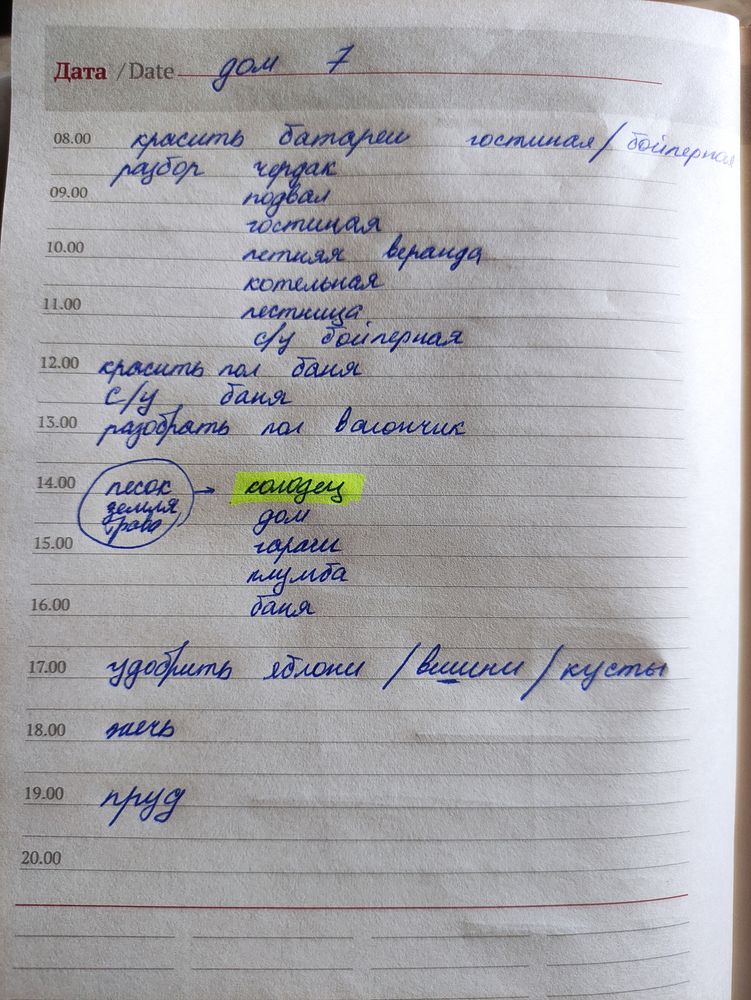 Дата / Date дом 7
08.00 красить батареи гостиная / бойлерная
разбор чердак
09.00 подвал
гостиная
10.00 летняя веранда
котельная
11.00 лестница
с/у бойлерная
12.00 красить пол баня
с/у баня
13.00 разобрать пол вагончик
14.00 песок → колодец
земля дом
трава
15.00 гараж
клумба
16.00 баня
17.00 удобрить яблони / вишни / кусты
18.00 жечь
19.00 пруд
20.00